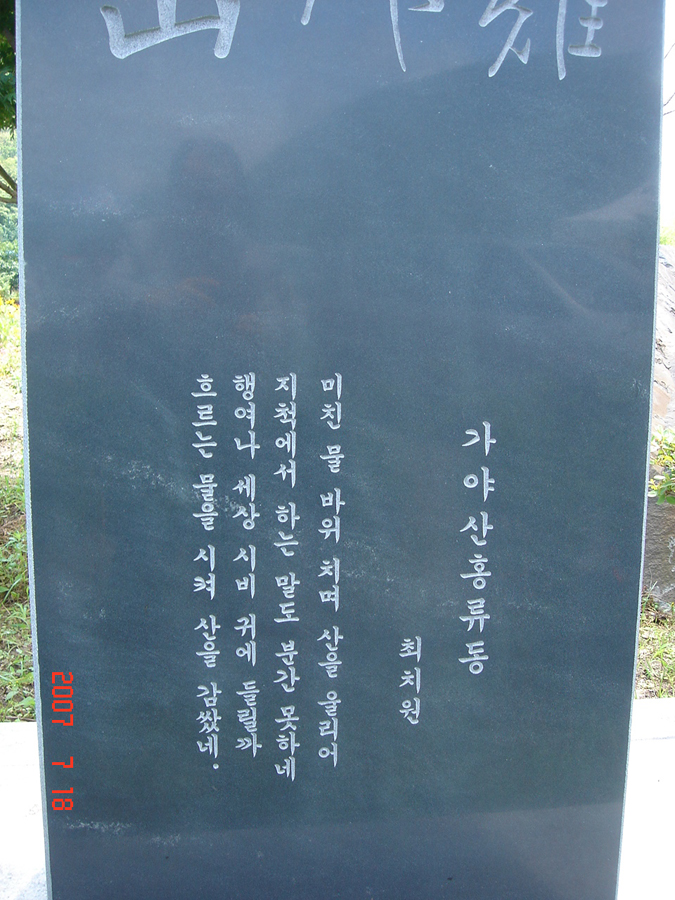 가야산홍류동
최치원
미친 물 바위 치며 산을 울리어
지척에서 하는 말도 분간 못하네
행여나 세상 시비 귀에 들릴까
흐르는 물을 시켜 산을 감쌌네.
2007 7 18